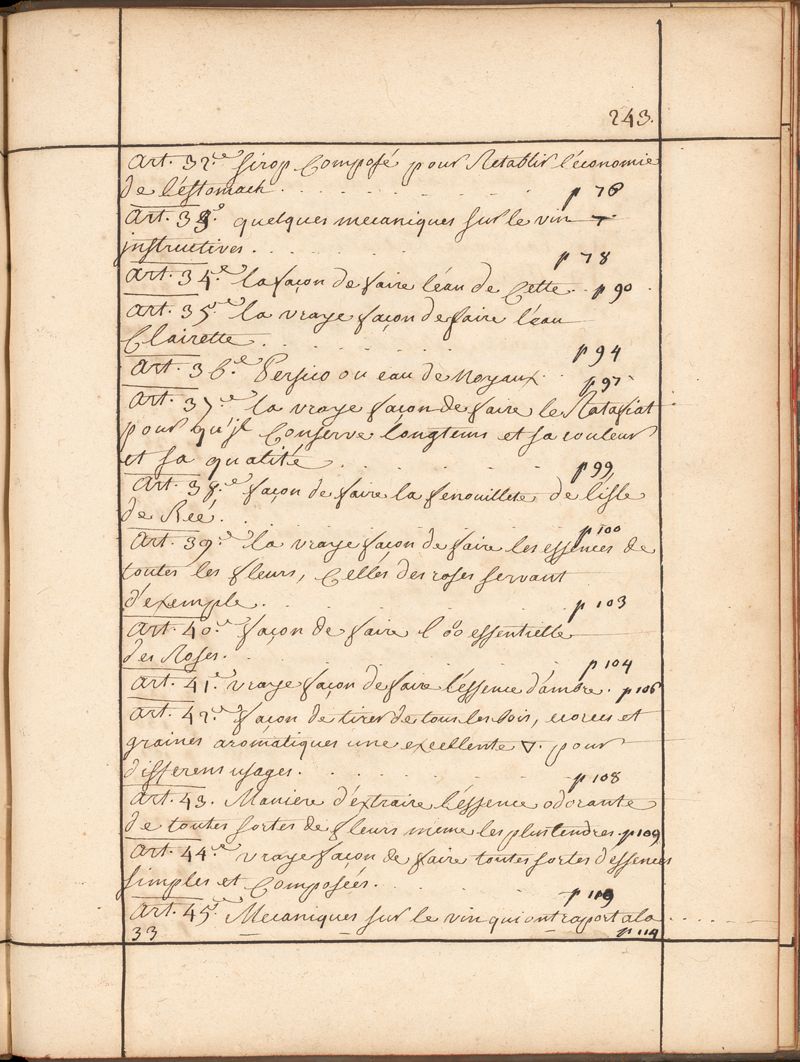 243.
Art. 32.e sirop Composé pour Retablir l'économie
de l'éstomach . . . . . . p 76
Art. 33.e quelques mecaniques sur le vin
instructives . . . . . . p 78
Art. 34.e la façon de faire l'éau de Cette . . p 90
Art. 35.e la vraye façon de faire l'éau
Clairette . . . . . . p 94
Art. 36.e Persico ou eau de Noyaux . . p 97
Art. 37.e la vraye façon de faire le Ratafiat
pour qu'jl Conserve l'ongtems et sa couleur
et sa qualité . . . . . p 99
Art. 38.e façon de faire la fenouillete de l'isle
de Reé . . . . . . p 100
Art. 39.e la vraye façon de faire les essences de
toutes les fleurs, Celles des roses servant
d'exemple . . . . . . p 103
Art. 40.e façon de faire l'oo essentielle
des Roses . . . . . . p 104
Art. 41.e vraye façon de faire l'éssence d'ambre . p 106
Art. 42.e façon de tirer de tous les bois, ecorces et
graines aromatiques une excellente ▽. pour
differens usages . . . . . . p 108
Art. 43. Maniere d'extraire l'éssence odorante
de toutes sortes de fleurs meme les plus tendres . p 109
Art. 44.e vraye façon de faire toutes sortes d'essences
simples et Composées . . . . .
Art. 45.e Mecaniques sur le vin qui ont raport a la
33 p 114